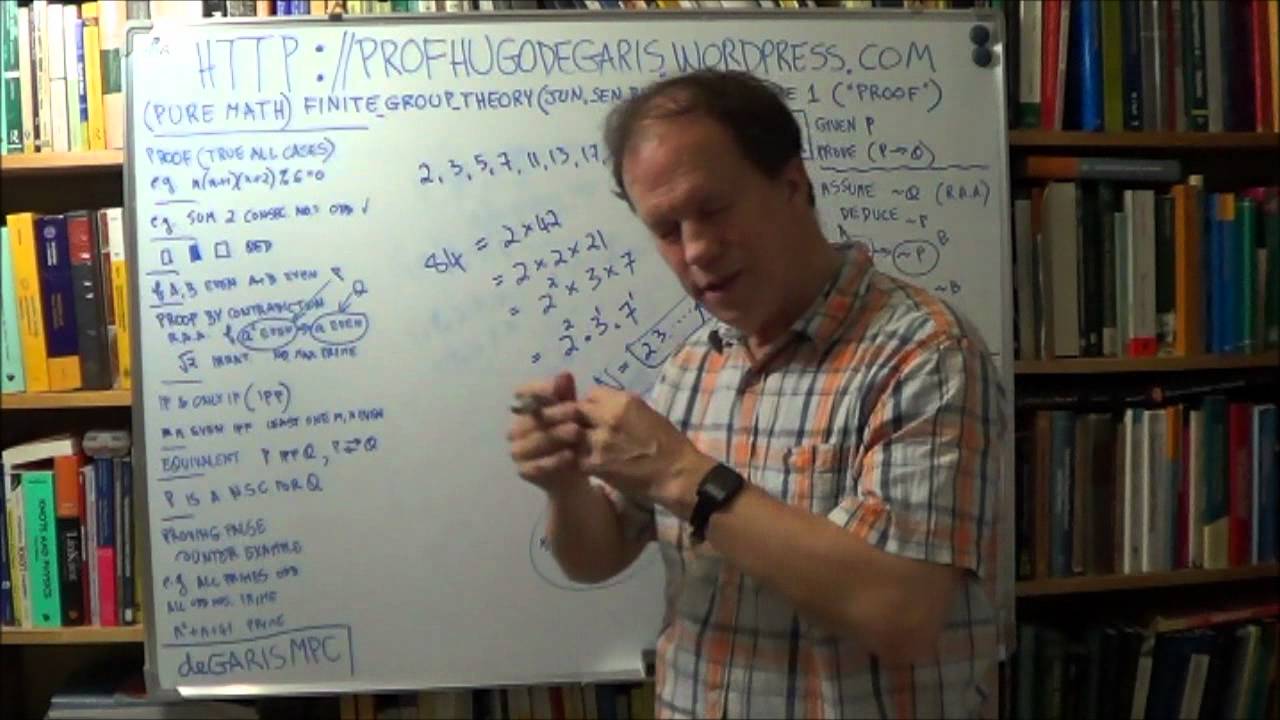 HTTP://PROFHUGODEGARIS.WORDPRESS.COM
(PURE MATH) FINITE_GROUP_THEORY (JUN, SEN 1 ("PROOF")
PROOF (TRUE ALL CASES)
eg n(n+1)(n+2)%6=0
eg SUM 2 CONSEC NOS ODD ✓
RED
A, B EVEN A+B EVEN P
PROOF BY CONTRADICTION Q
R.A.A. a² EVEN → a EVEN
√2 IRRAT NO MAX PRIME
IF & ONLY IF (IFF)
EVEN IFF LEAST ONE M, N EVEN
EQUIVALENT P IFF Q, P⇄Q
P IS A NSC FOR Q
PROVING FALSE
COUNTER EXAMPLE
e.g ALL PRIMES ODD
ALL ODD NOS. PRIME
n²+n+41 PRIME
deGARISMPC
2, 3, 5, 7, 11, 13, 17,
84 = 2 × 42
= 2 × 2 × 21
= 2² × 3 × 7
= 2² · 3¹ · 7¹
N = 2 3 ...
GIVEN P
PROVE (P→Q)
ASSUME ~Q (R.A.A)
DEDUCE ~P
A B
→ ~P
~B
KNOTS AND PHYSICS